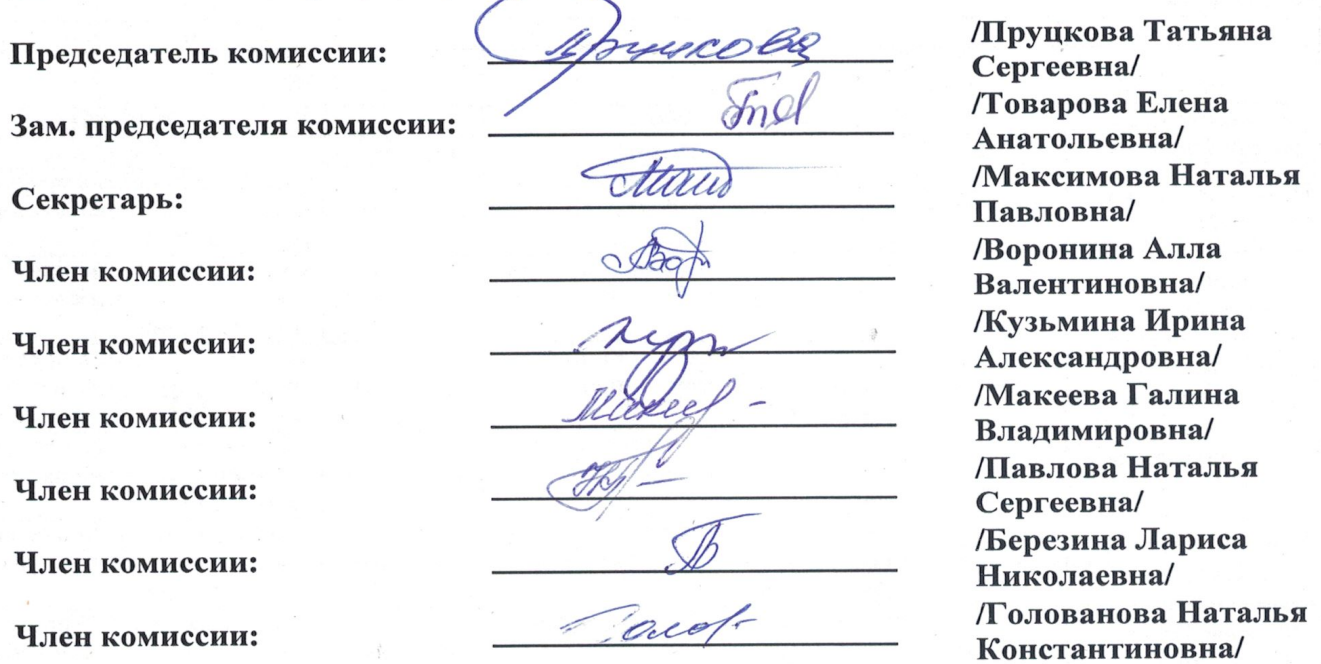 Председатель комиссии: Пруцкова /Пруцкова Татьяна
Сергеевна/
Зам. председателя комиссии: /Товарова Елена
Анатольевна/
Секретарь: /Максимова Наталья
Павловна/
Член комиссии: /Воронина Алла
Валентиновна/
Член комиссии: /Кузьмина Ирина
Александровна/
Член комиссии: /Макеева Галина
Владимировна/
Член комиссии: /Павлова Наталья
Сергеевна/
Член комиссии: /Березина Лариса
Николаевна/
Член комиссии: /Голованова Наталья
Константиновна/